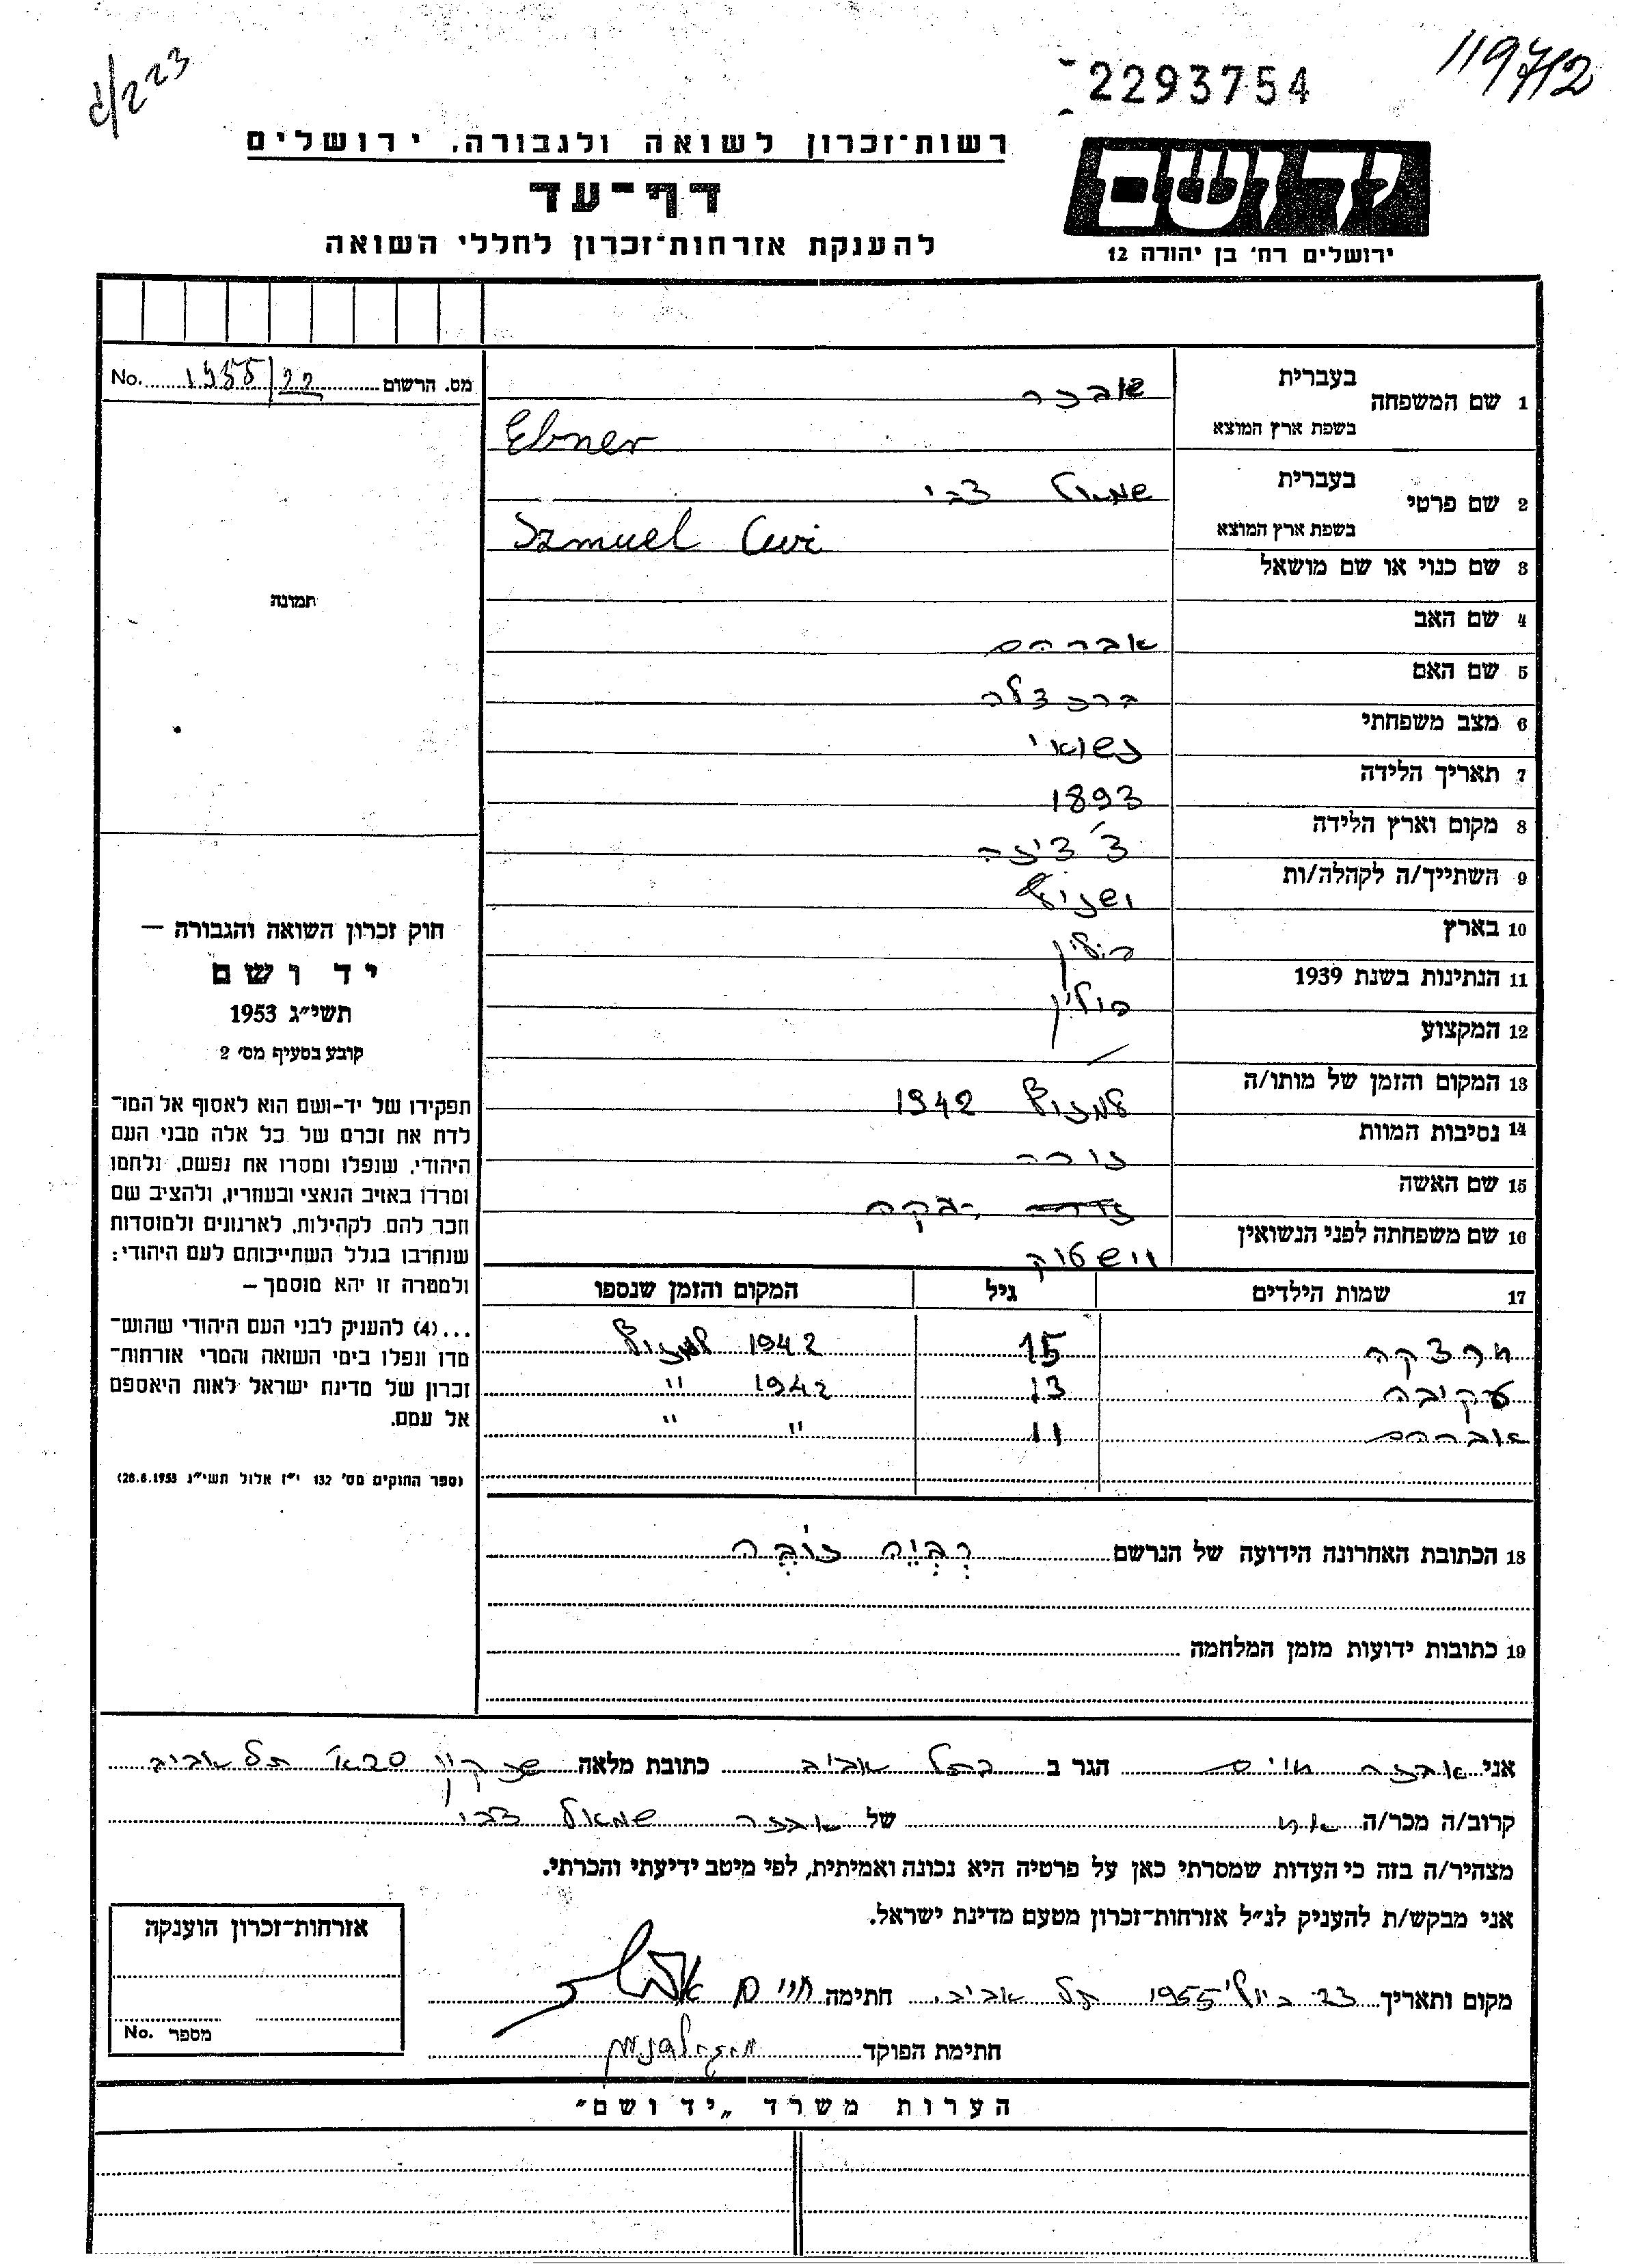 ג/223
2293754
11972
רשות־זכרון לשואה ולגבורה, ירושלים
דף־עד
להענקת אזרחות־זכרון לחללי השואה
יד ושם
ירושלים רח׳ בן יהודה 12
מס. הרשום No. 1955/22
1 שם המשפחה בעברית אבנר
בשפת ארץ המוצא Ebner
2 שם פרטי בעברית שמואל צבי
בשפת ארץ המוצא Szmuel Cwi
3 שם כנוי או שם מושאל
תמונה
4 שם האב אברהם
5 שם האם
6 מצב משפחתי נשואי
7 תאריך הלידה 1893
8 מקום וארץ הלידה
9 השתייך/ה לקהלה/ות
10 בארץ פולין
11 הנתינות בשנת 1939 פולין
12 המקצוע
13 המקום והזמן של מותו/ה 1942
14 נסיבות המוות
15 שם האשה רבקה
16 שם משפחתה לפני הנשואין
17 שמות הילדים גיל המקום והזמן שנספו
15 1942
עקיבה 13 1942 "
אברהם 11 " "
18 הכתובת האחרונה הידועה של הנרשם
19 כתובות ידועות מזמן המלחמה
חוק זכרון השואה והגבורה —
יד ושם
תשי״ג 1953
קובע בסעיף מס׳ 2
תפקידו של יד-ושם הוא לאסוף אל המו־
לדת את זכרם של כל אלה מבני העם
היהודי, שנפלו ומסרו את נפשם, נלחמו
ומרדו באויב הנאצי ובעוזריו, ולהציב שם
וזכר להם, לקהילות, לארגונים ולמוסדות
שנחרבו בגלל השתייכותם לעם היהודי;
ולמטרה זו יהא מוסמך —
...(4) להעניק לבני העם היהודי שהוש־
מדו ונפלו בימי השואה והמרי אזרחות־
זכרון של מדינת ישראל לאות היאספם
אל עמם.
(ספר החוקים מס׳ 132 י״ז אלול תשי״ג 28.8.1953)
אני אבנר חיים הגר ב בתל אביב כתובת מלאה תל אביב
קרוב/ה מכר/ה אח של אבנר שמואל צבי
מצהיר/ה בזה כי העדות שמסרתי כאן על פרטיה היא נכונה ואמיתית, לפי מיטב ידיעתי והכרתי.
אני מבקש/ת להעניק לנ״ל אזרחות־זכרון מטעם מדינת ישראל.
מקום ותאריך 23 ביולי 1955 תל אביב. חתימה חיים
חתימת הפוקד
אזרחות־זכרון הוענקה
מספר No.
הערות משרד „יד ושם״